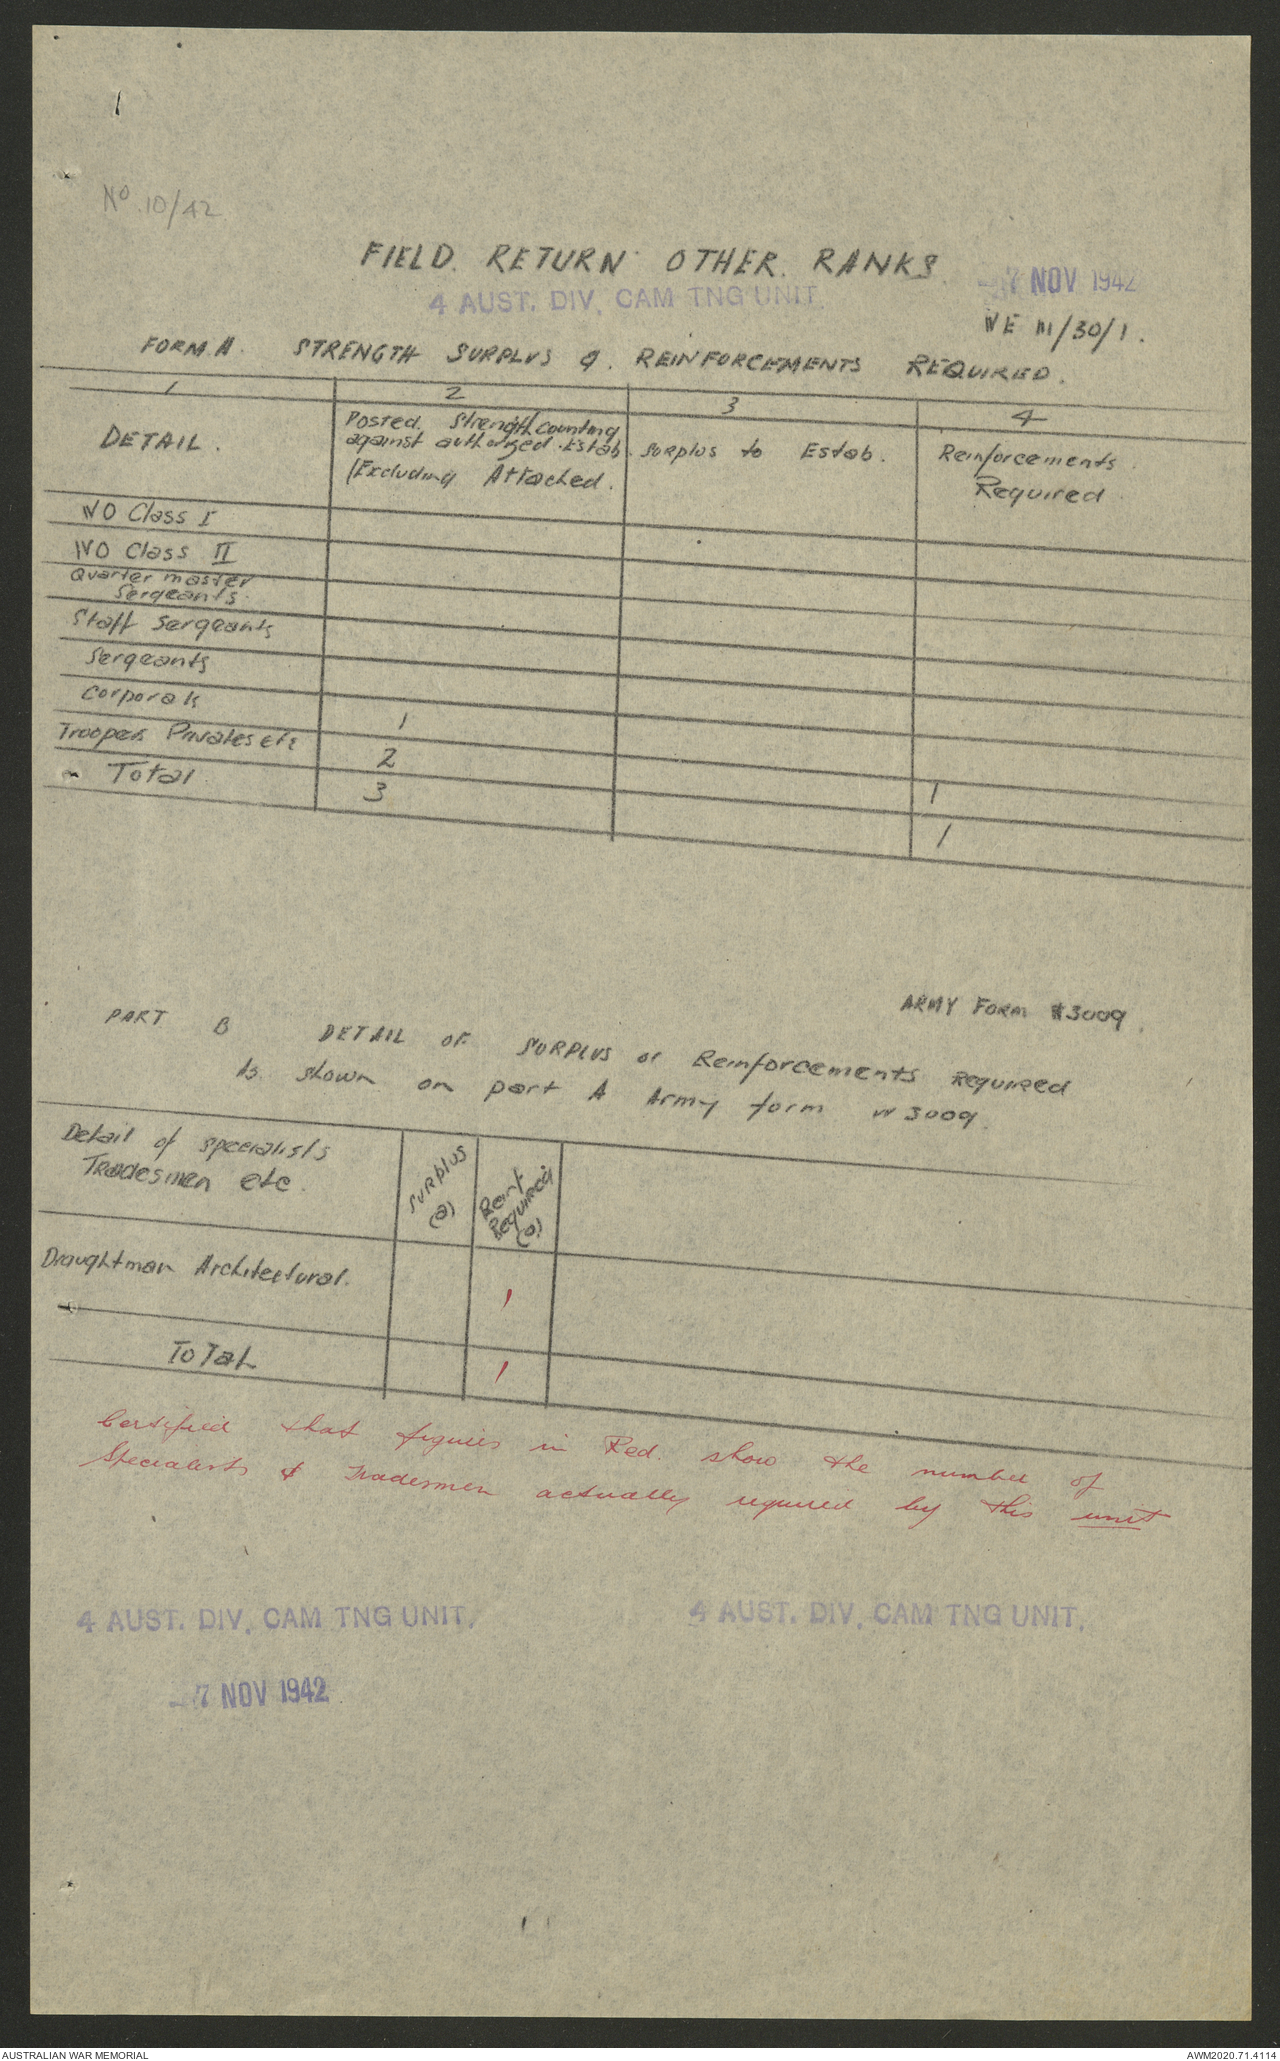 1
No. 10/42
FIELD. RETURN OTHER. RANKS.
4 AUST. DIV. CAM TNG UNIT.
-7 NOV 1942
WE III/30/1.
FORM A. STRENGTH SURPLUS &. REINFORCEMENTS REQUIRED.
1 2 3 4
DETAIL.
Posted. Strength counting
against authorized. Estab.
(Excluding Attached.
Surplus to Estab.
Reinforcements
Required.
WO Class I
WO Class II
Quarter master
Sergeants.
Staff Sergeants
Sergeants
Corporals 1
Troopers Privates etc 2 1
Total 3 1
ARMY FORM W3009.
PART B DETAIL OF SURPLUS or Reinforcements Required
As shown on part A Army form W 3009.
Detail of specialists
Tradesmen etc.
Surplus
(a)
Reinf
Required
(a)
Draughtman Architectural. 1
ToTaL 1
Certified that figures in Red. show the number of
Specialists & Tradesmen actually required by this unit
4 AUST. DIV. CAM TNG UNIT.
4 AUST. DIV. CAM TNG UNIT.
-7 NOV 1942
AUSTRALIAN WAR MEMORIAL
AWM2020.71.4114